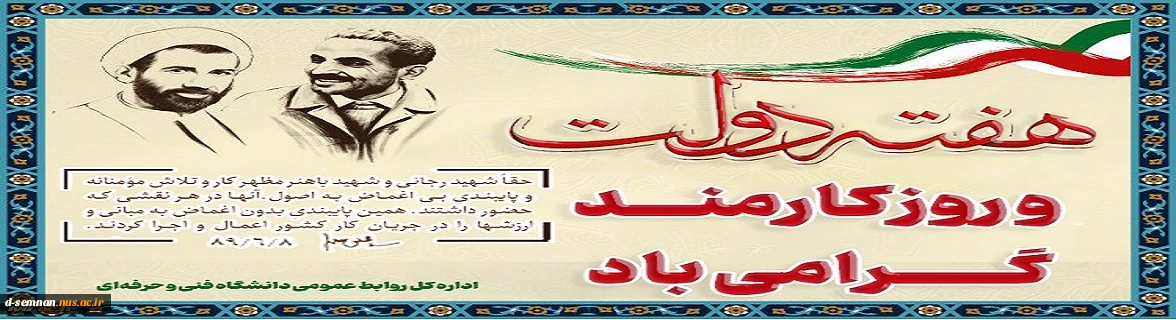 هفته دولت
و روز کارمند
گرامی باد
حقاً شهید رجائی و شهید باهنر مظهر کار و تلاش مؤمنانه
و پایبندی بی اغماض به اصول.آنها در هر نقشی که
حضور داشتند، همین پایبندی بدون اغماض به مبانی و
ارزشها را در جریان کار کشور اعمال و اجرا کردند.
۸۹/۶/۸
اداره کل روابط عمومی دانشگاه فنی و حرفه‌ای
d-semnan.nus.ac.ir